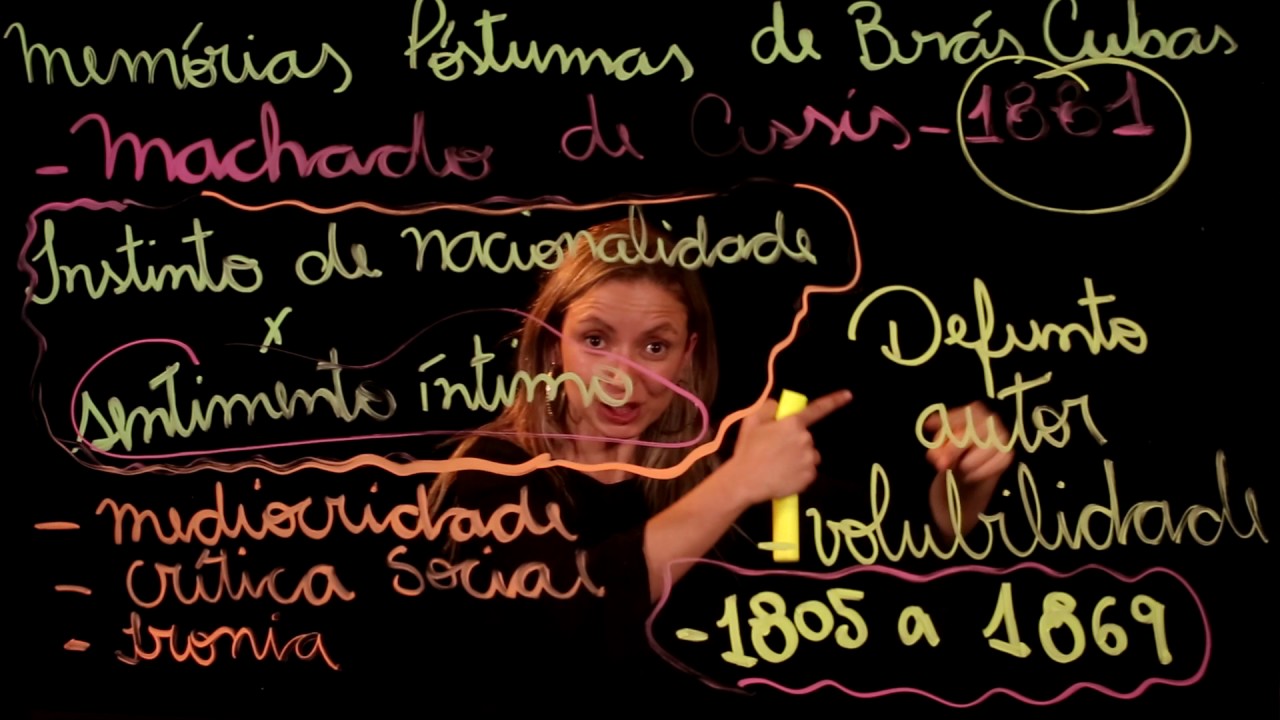 Memórias Póstumas de Brás Cubas
- Machado de Assis - 1881
Instinto de nacionalidade
x
sentimento íntimo
- mediocridade
- crítica Social
- Ironia
Defunto
autor
- volubilidade
- 1805 a 1869